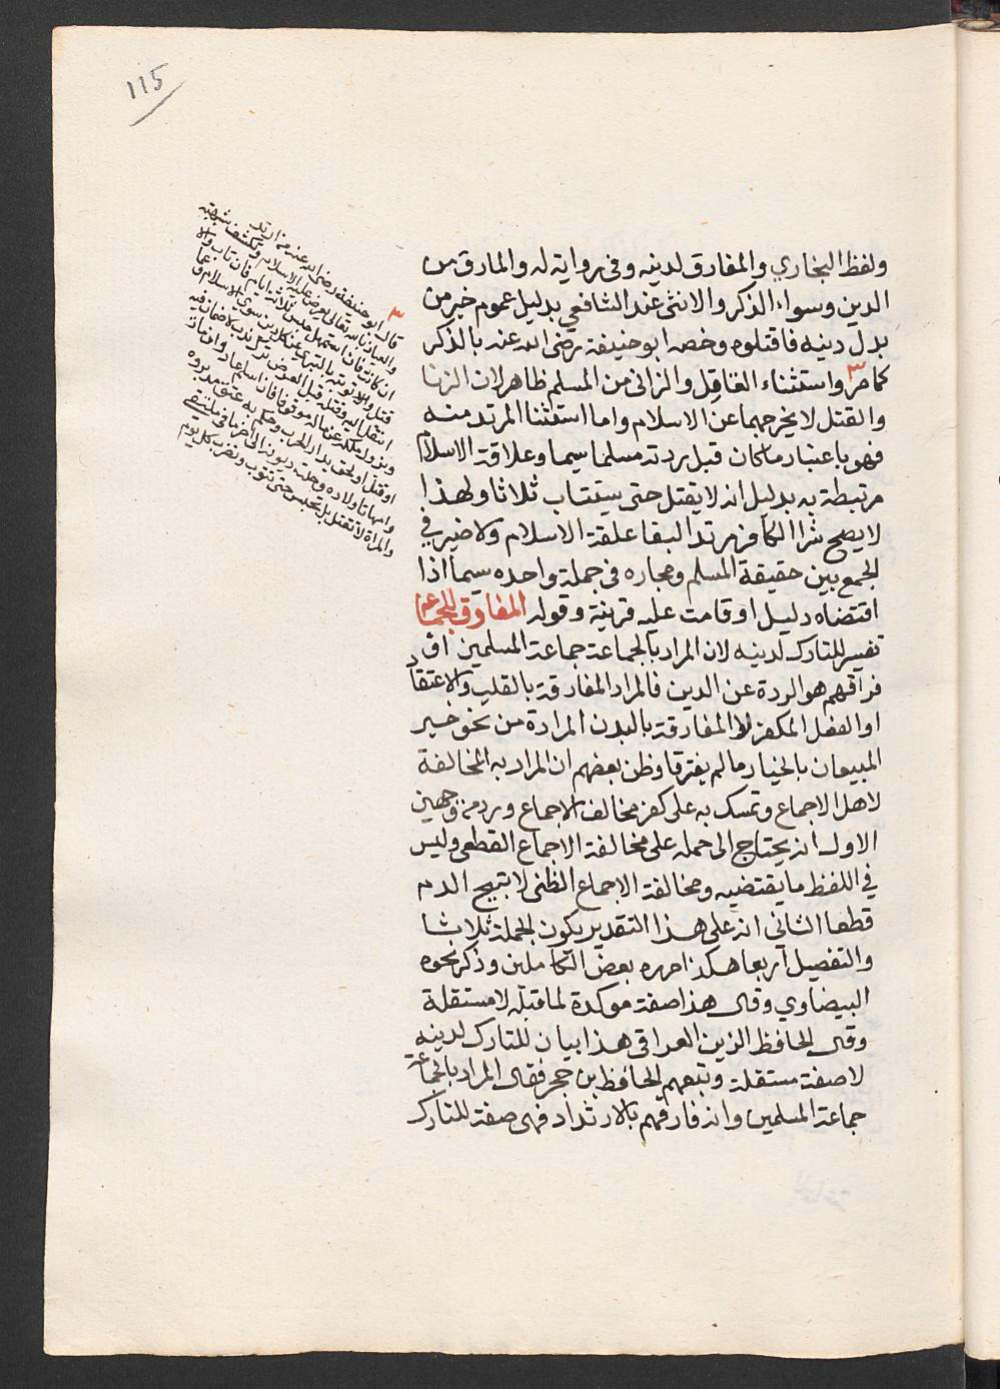 115
ولفظ البخاري والمفارق لدينه وفي رواية له والمارق من
الدين وسواء الذكر والانثى عند الشافعي بدليل عموم خبر من
بدل دينه فاقتلوه وخصه ابو حنيفة رضي الله عنه بالذكر
كما مر ٣ واستثناء القاتل والزاني من المسلم ظاهر لان الزنا
والقتل لا يخرجهما عن الاسلام واما استثنا المرتد منه
فهو باعتبار ما كان قبل ردته مسلما سيما وعلاقة الاسلام
مرتبطة به بدليل انه لا يقتل حتى يستتاب ثلاثا ولهذا
لا يصح شرا الكافر مرتدا لبقا علقة الاسلام ولا ضير في
الجمع بين حقيقة المسلم ومجازه في جملة واحده سيما اذا
اقتضاه دليل او قامت عليه قرينة وقوله المفارق للجماعة
تفسير للتارك لدينه لان المراد بالجماعة جماعة المسلمين
فراقهم هو الردة عن الدين فالمراد المفارقة بالقلب والاعتقاد
او الفعل المكفر لا المفارقة بالبدن المرادة من نحو خبر
المبيعان بالخيار ما لم يفترقا وظن بعضهم ان المراد به المخالفة
لاهل الاجماع وتمسك به على كفر مخالف الاجماع ورد من وجهين
الاول انه يحتاج الى حمله على مخالفة الاجماع القطعي وليس
في اللفظ ما يقتضيه ومخالفة الاجماع الظني لا تبيح الدم
قطعا الثاني انه على هذا التقدير يكون الجملة ثلاثا
والتفصيل اربعا هكذا حرره بعض الكاملين وذكر نحوه
البيضاوي وقال هذا صفة موكدة لما قبله لا مستقلة
وقال الحافظ الزين العراقي هذا بيان للتارك لدينه
لا صفة مستقلة وتبعهم الحافظ بن حجر فقال المراد بالجماعة
جماعة المسلمين وانه فارقهم بالارتداد فهي صفة للتارك
الجماعة
٣
قال ابو حنيفة رضي الله عنه من ارتد
والعياذ بالله تعالى يعرض عليه الاسلام وتكشف شبهته
ان كانت فان استمهل حبس ثلاثة ايام فان تاب والا
قتل وتوبته بالتبري عن كل دين سوى الاسلام او عما
انتقل اليه وقتله قبل العرض ترك ندب لا ضمان فيه
ويزول ملكه عن ماله موقوفا فان اسلم عاد وان مات
او قتل او لحق بدار الحرب وحكم به عتق مدبروه
وامهات اولاده وحلت ديونه الى اخر ما في ملتقى
والمراة لا تقتل بل تحبس حتى تتوب وتضرب كل يوم